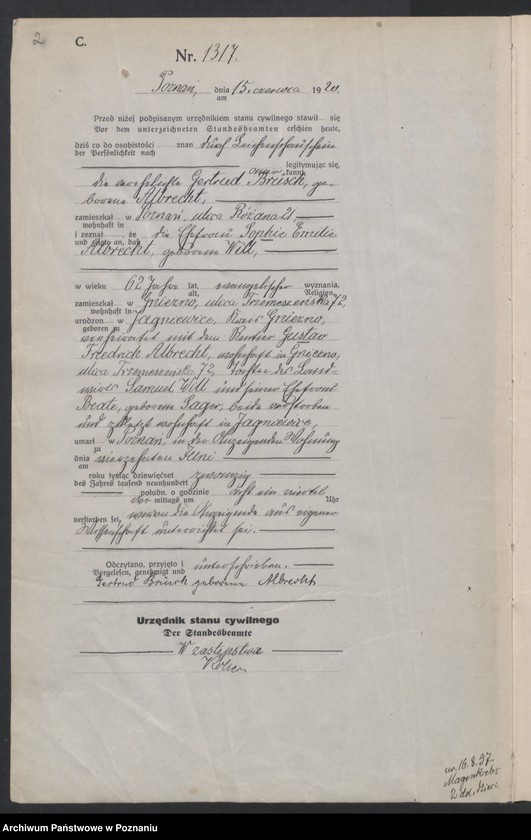 2
C.
Nr. 1317.
Poznań, dnia 15. czerwca 1920.
am
Przed niżej podpisanym urzędnikiem stanu cywilnego stawił się
Vor dem unterzeichneten Standesbeamten erschien heute,
dziś co do osobistości znan durch Leichenschauschein
der Persönlichkeit nach
legitymując się,
kannt
die verehelichte Gertrud Brüsch, ge-
borene Albrecht,
zamieszkał w Poznań, ulica Różana 21,
wohnhaft in
i zeznał, że die Ehefrau Sophie Emilie
und zeigte an, daß
Albrecht, geborene Will,
w wieku 62 Jahre lat, evangelischer wyznania,
alt, Religion
zamieszkał w Gniezno, ulica Trzemeszeńska 72,
wohnhaft in
urodzon w Jagniewice, Kreis Gniezno,
geboren zu
verheiratet mit dem Rentier Gustav
Friedrich Albrecht, wohnhaft in Gniezno,
ulica Trzemeszeńska 72, Tochter des Land-
wirts Samuel Will und seiner Ehefrau
Beate, geborene Sager, beide verstorben
und zuletzt wohnhaft in Jagniewice,
umarł w Poznań, in der Anzeigenden Wohnung
zu
dnia vierzehnten Juni
am
roku tysiąc dziewięćset zwanzig
des Jahres tausend neunhundert
połudn. o godzinie acht ein viertel
vor mittags um Uhr
verstorben sei,
wovon die Anzeigende aus eigener
Wissenschaft unterrichtet sei.
Odczytano, przyjęto i unterschrieben.
Vorgelesen, genehmigt und
Gertrud Brüsch geborene Albrecht
Urzędnik stanu cywilnego
Der Standesbeamte
W zastępstwie
ur. 16.8.97
Archiwum Państwowe w Poznaniu